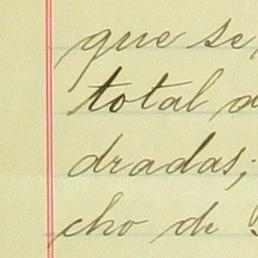 que se
total d
dradas;
cho de